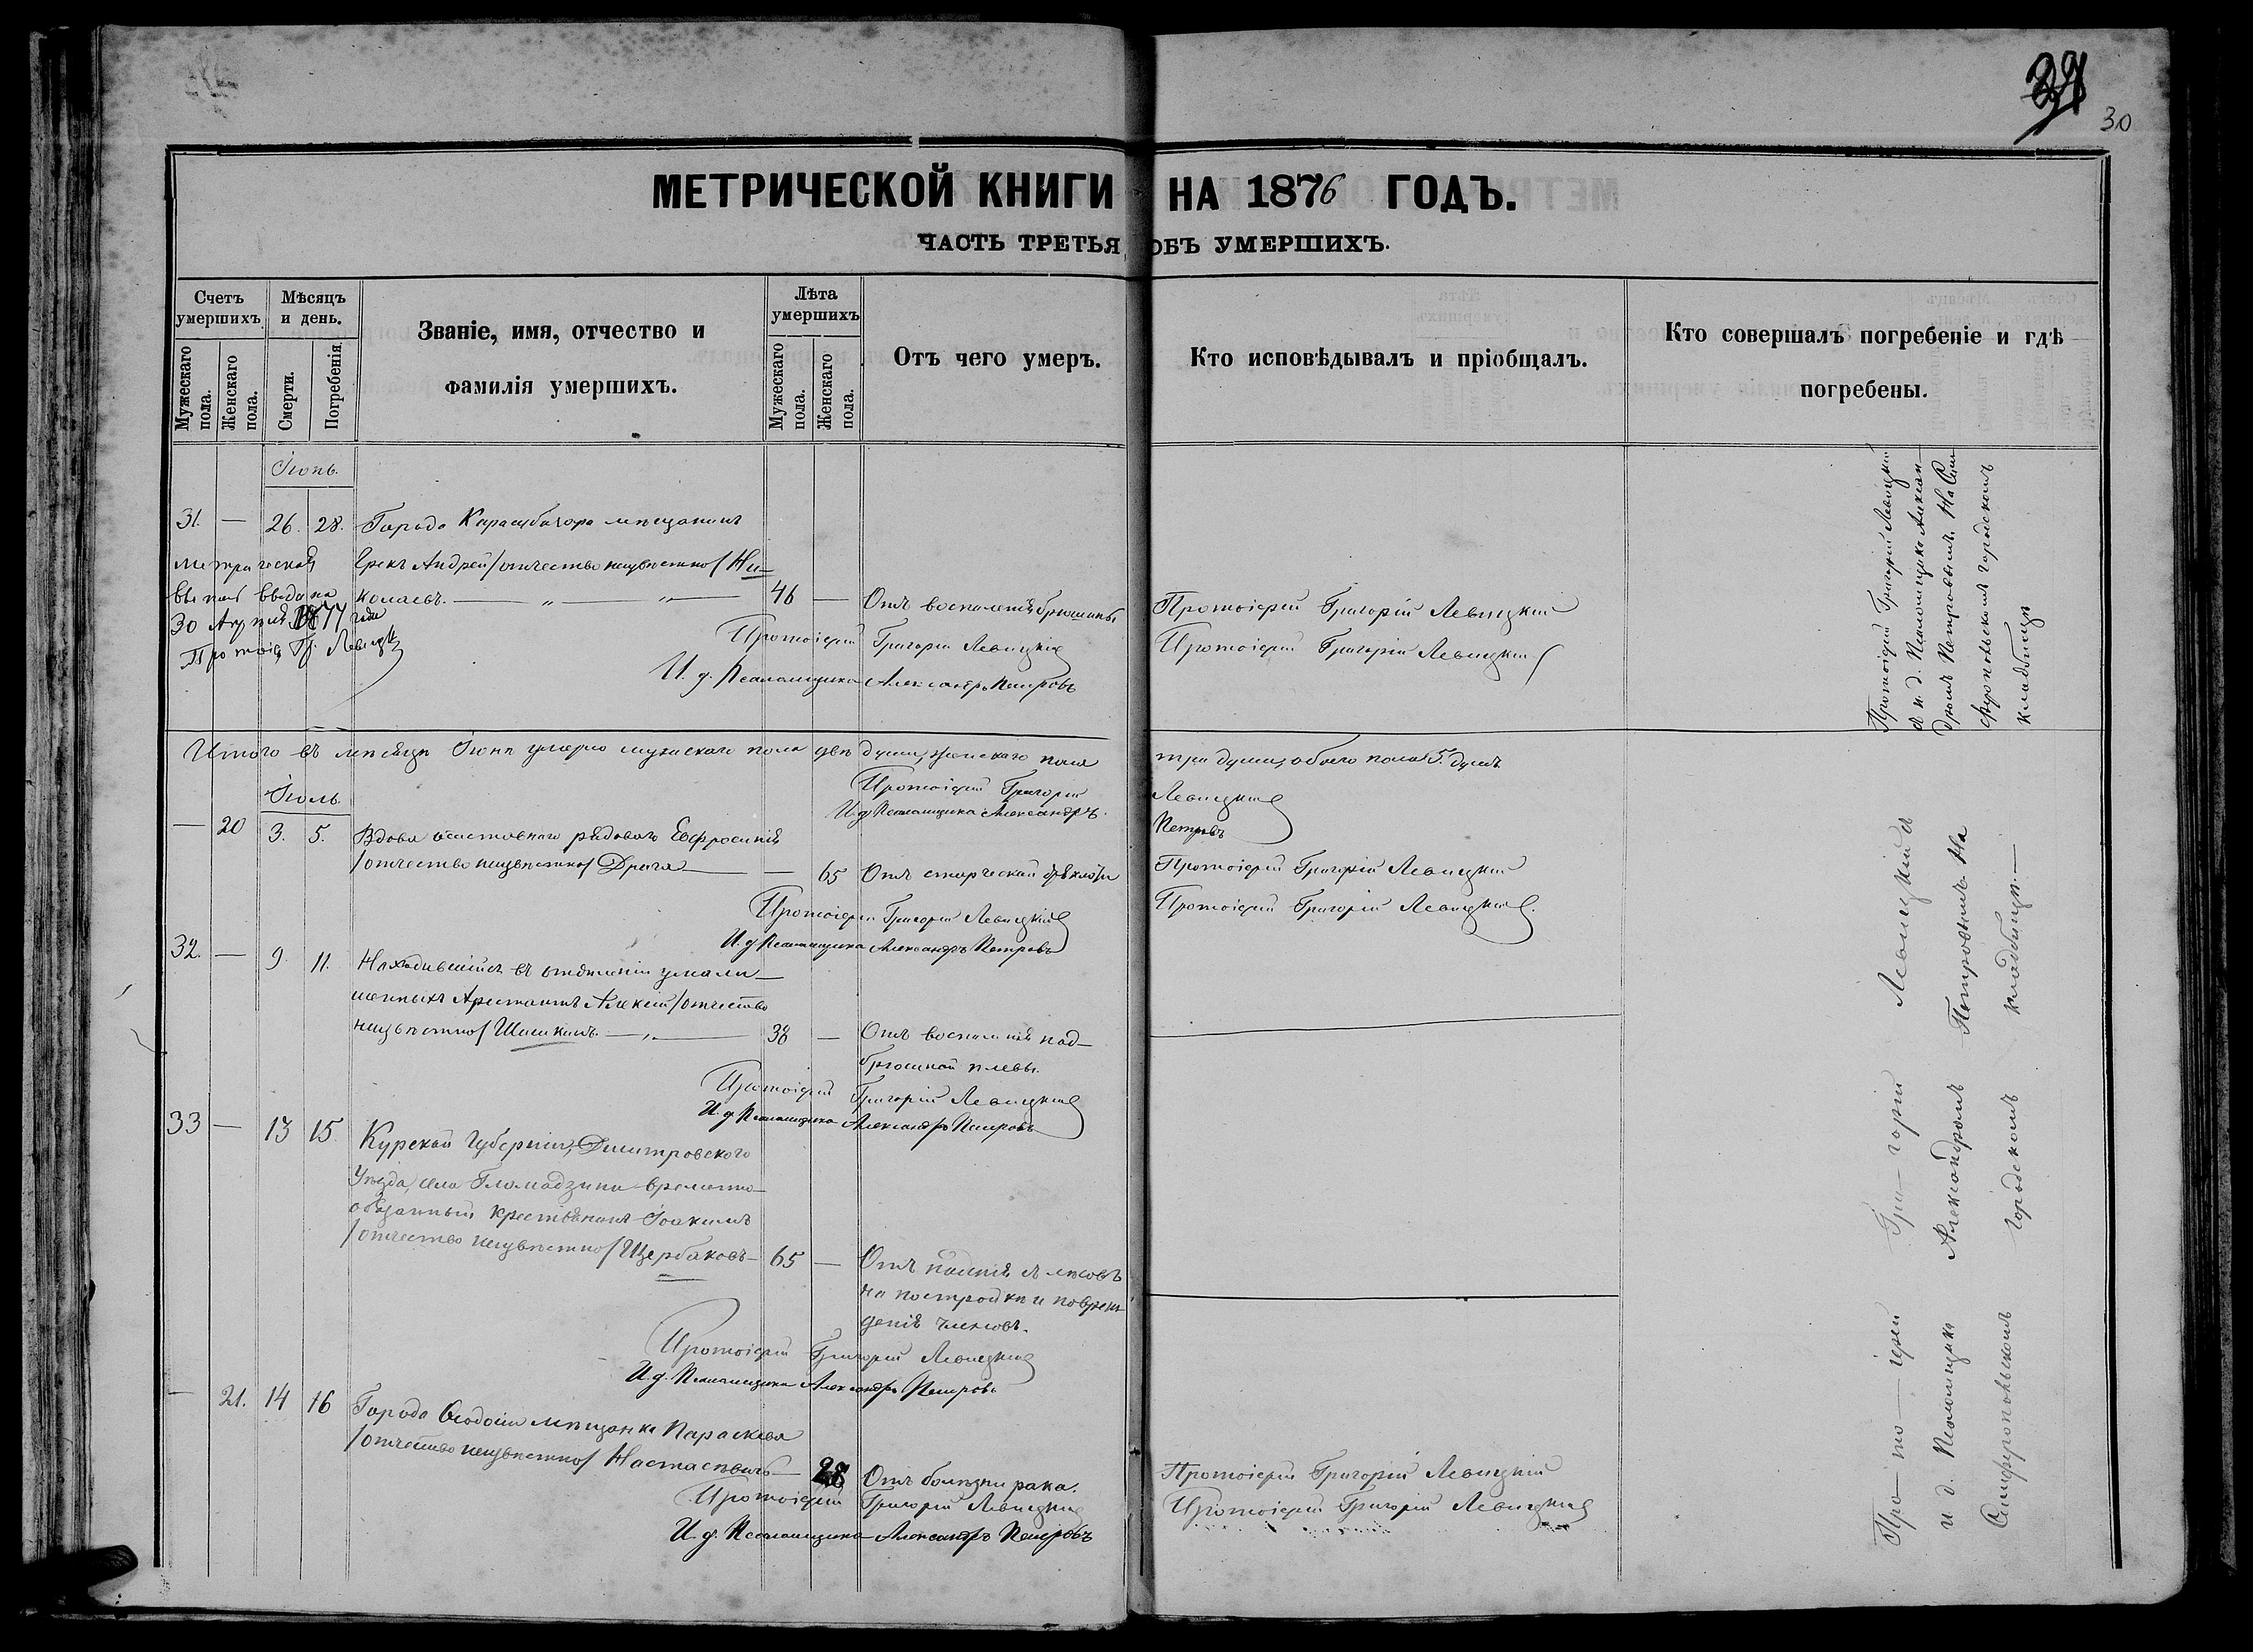 30
МЕТРИЧЕСКОЙ КНИГИ НА 1876 ГОДЪ.
ЧАСТЬ ТРЕТЬЯ, ОБЪ УМЕРШИХЪ.
Счетъ умершихъ.
Мужескаго пола.
Женскаго пола.
Мѣсяцъ и день.
Смерти.
Погребенія.
Званіе, имя, отчество и
фамилія умершихъ.
Лѣта умершихъ
Мужескаго пола.
Женскаго пола.
Отъ чего умеръ.
Кто исповѣдывалъ и пріобщалъ.
Кто совершалъ погребеніе и гдѣ
погребены.
Іюнь.
31. — 26. 28. Города Карасубазара мѣщанинъ
Грекъ Андрей /отчество неизвѣстно/ Ни-
колаевъ. — 46 — Отъ воспаленія брюшины
Метрическая
выпись выдана
30 Апрѣля 1877 года
Протоіер. Гр. Левицк
Протоіерей Григорій Левицкій
И. д. Псаломщика Александръ Петровъ
Протоіерей Григорій Левицкій
Протоіерей Григорій Левицкій
Протоіерей Григорій Левицкій
съ и. д. Псаломщика Алексан-
дромъ Петровымъ. На Сим-
феропольскомъ городскомъ
кладбищѣ
Итого въ мѣсяцѣ Іюнѣ умерло мужескаго пола двѣ души, женскаго пола три души, обоего пола 5. душъ.
Протоіерей Григорій Левицкій
И. д. Псаломщика Александръ Петровъ
Іюль.
— 20 3. 5. Вдова отставнаго рядоваго Евфросинія
/отчество неизвѣстно/ Драга — — 65 Отъ старческой дряхлости
Протоіерей Григорій Левицкій
И. д. Псаломщика Александръ Петровъ
Протоіерей Григорій Левицкій
Протоіерей Григорій Левицкій.
32. — 9. 11. Находившійся въ отдѣленіи умали-
шенныхъ Арестантъ Алексій /отчество
неизвѣстно/ Шишкинъ. — 38 — Отъ воспаленія над-
брюшной плевы.
Протоіерей Григорій Левицкій
И. д. Псаломщика Александръ Петровъ
33 — 13 15. Курской Губерніи, Дмитровскаго
Уѣзда, села Гломадзина временно-
обязанный крестьянинъ Іоакимъ
/отчество неизвѣстно/ Щербаковъ — 65 — Отъ паденія съ лѣсовъ
на постройкѣ и повреж-
денія членовъ.
Протоіерей Григорій Левицкій
И. д. Псаломщика Александръ Петровъ
— 21. 14 16 Города Ѳеодосіи мѣщанка Параскева
/отчество неизвѣстно/ Настасевичъ — 28 Отъ болѣзни рака.
Протоіерей Григорій Левицкій
И. д. Псаломщика Александръ Петровъ
Протоіерей Григорій Левицкій
Протоіерей Григорій Левицкій
Про — то — іерей Гри — горій Левицкій съ
и. д. Псаломщика Александромъ Петровымъ. На
Симферопольскомъ городскомъ кладбищѣ. —